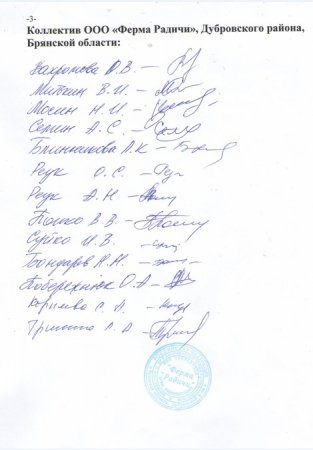 -3-
Коллектив ООО «Ферма Радичи», Дубровского района,
Брянской области:
Вахромова О.В. –
Митькин В.И. –
Мосин Н.И. –
Семин А.С. –
Блинникова Л.К –
Реук О.С. –
Реук А.Н –
Тонко В.В. –
Суйко И.В.
Бондарев А.Н. –
Поберехнюк О.А –
С.А.
Тришина Л.А –
"Ферма
Радичи"